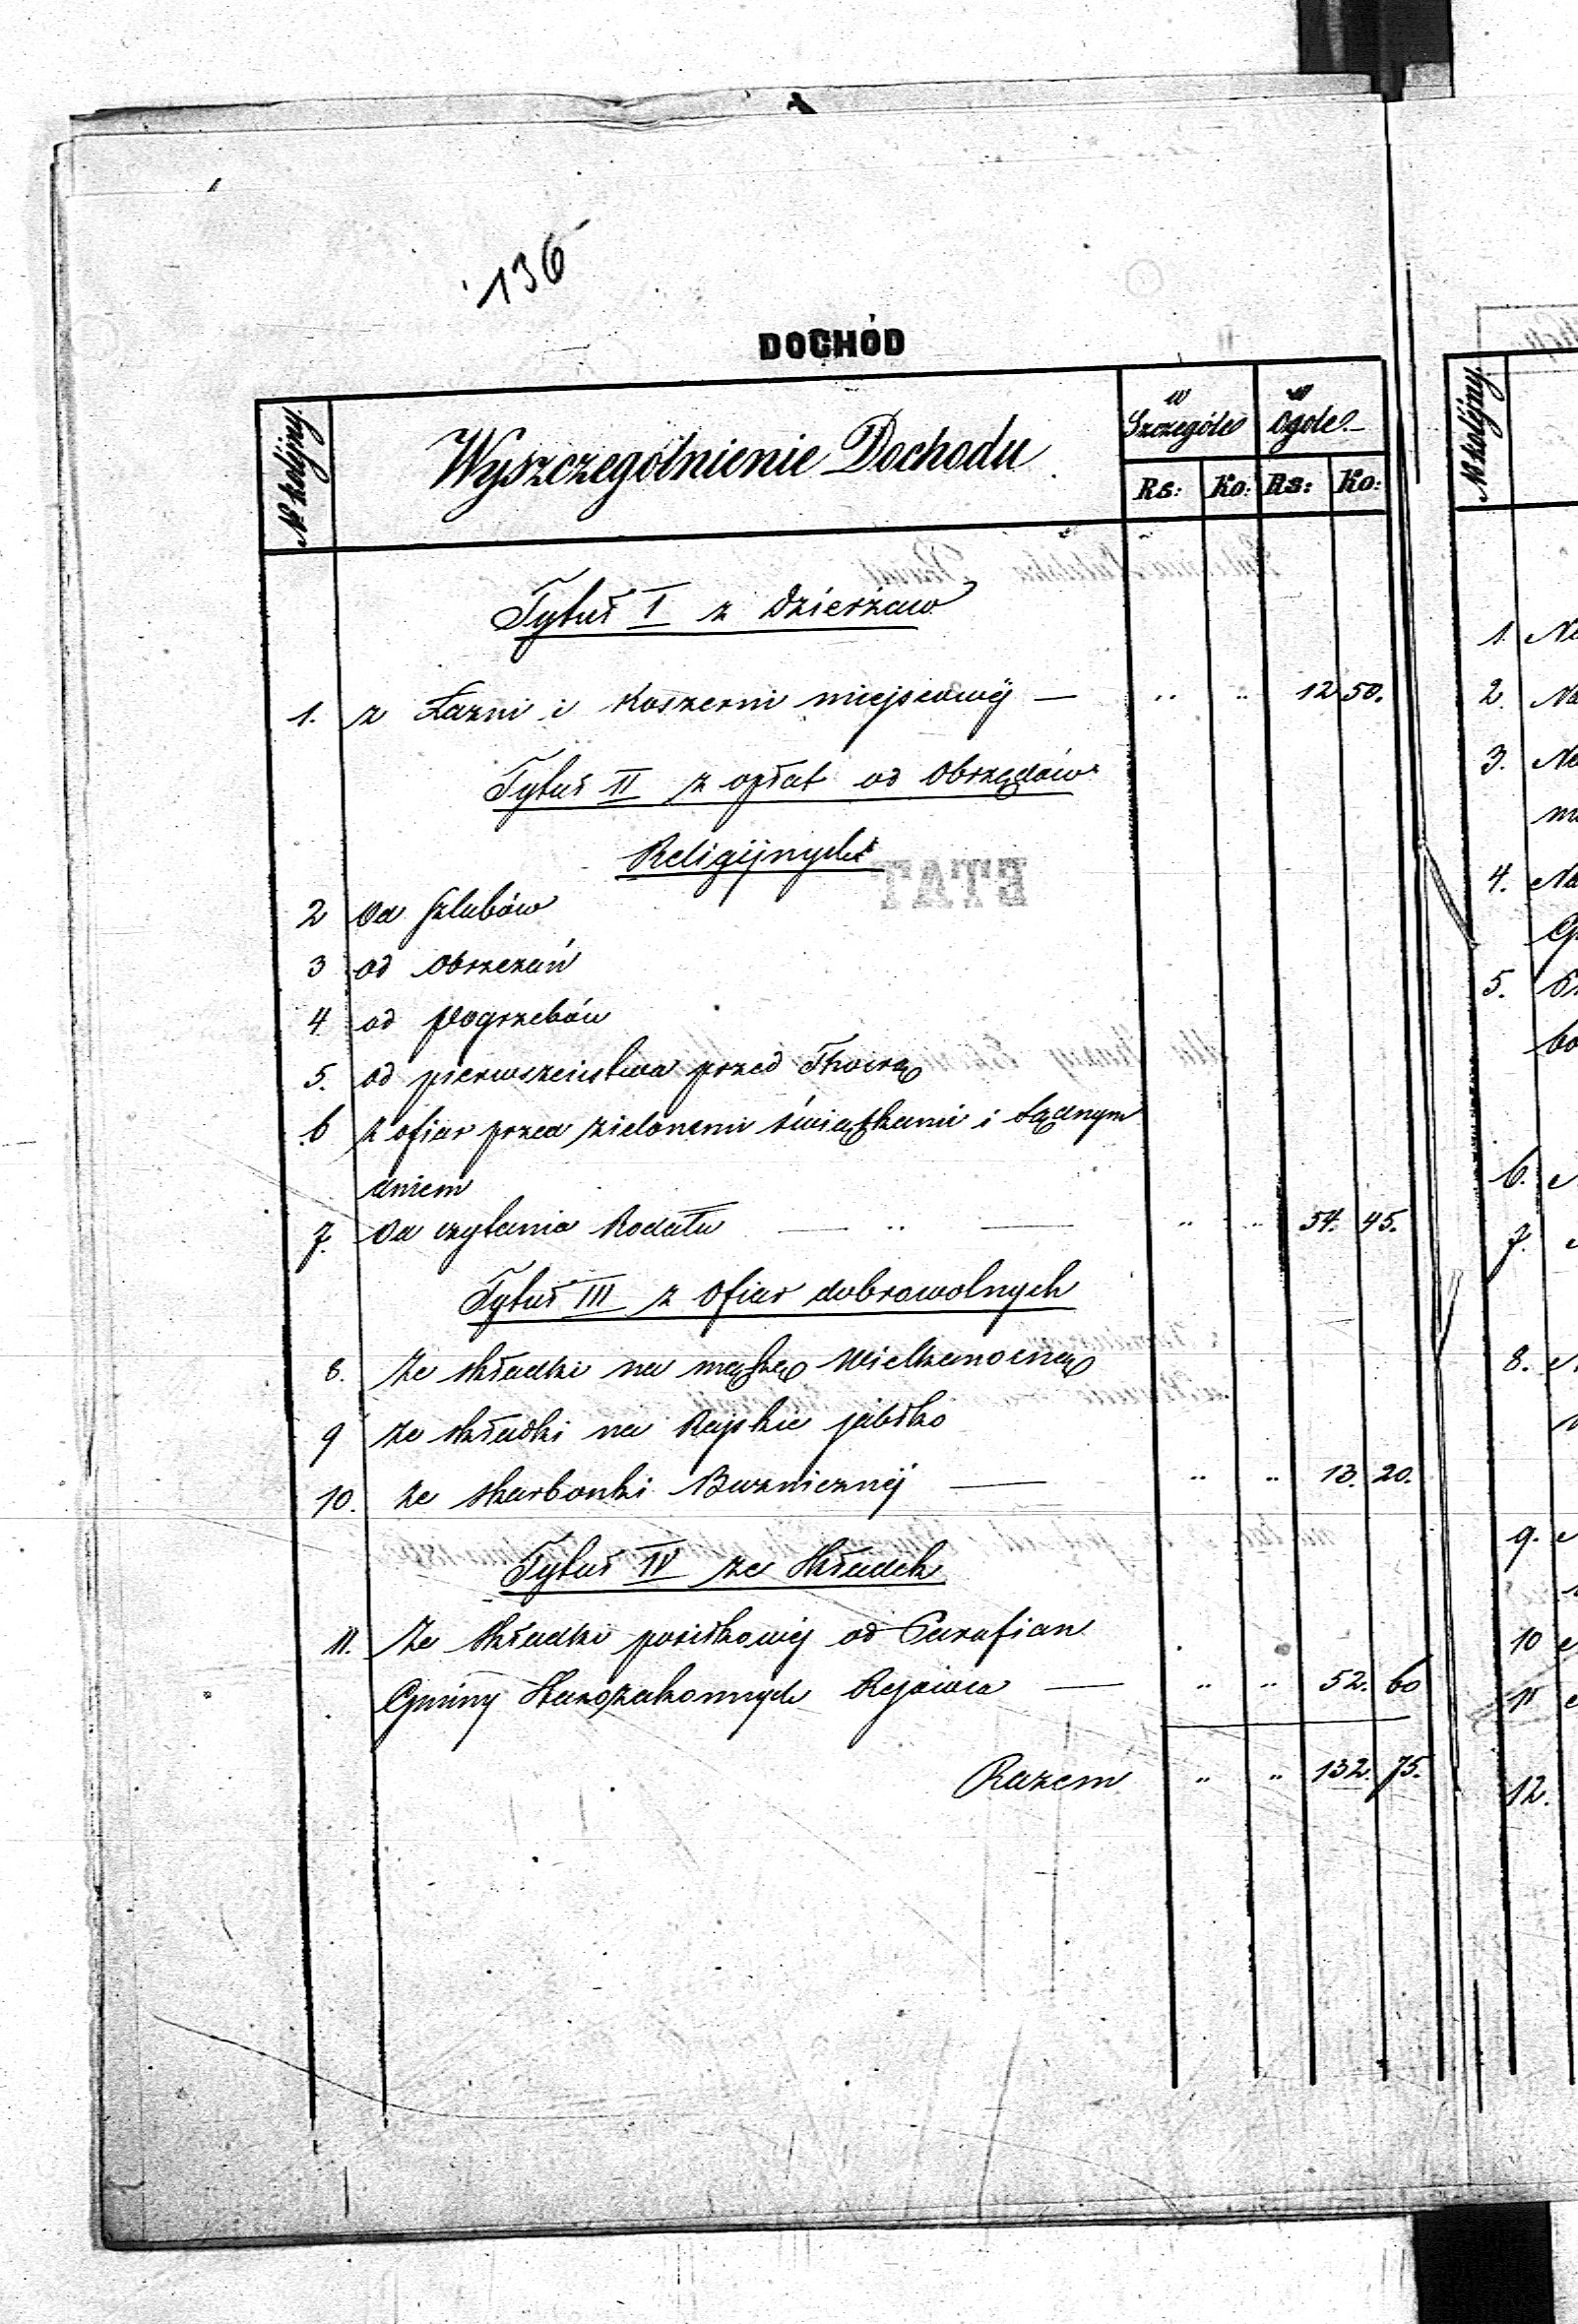 136
DOCHÓD
№ kolejny. Wyszczególnienie Dochodu w Szczególe w Ogóle
Rs: Ko: Rs: Ko:
Tytuł I z Dzierżaw
1. z Łazni i Koszerni miejscowéj — " " 12 50.
Tytuł II z opłat od Obrzędów
Religijnych
2 Od Szlubów
3 od obrzezań
4 od pogrzebów
5. od pierwszeństwa przed Thorą
6 z ofiar przed zielonemi świątkami i Sądnym
dniem
7. Od czytania Rodału — " — " " 54. 45.
Tytuł III z Ofiar dobrowolnych
8. Ze składki na mąkę Wielkanocną
9 Ze składki na Rajskie jabłko
10. Ze skarbonki Bużnicznéj — " " 13. 20.
Tytuł IV ze Składek
11. Ze Składki posiłkowéj od Parafian
Gminy Starozakonnych Rejowca — " " 52. 60
Razem " " 132. 75.
№ kolejny.
1. Na
2. Na
3. Na
4. Na
5.
6.
7.
8.
9.
10
11
12.